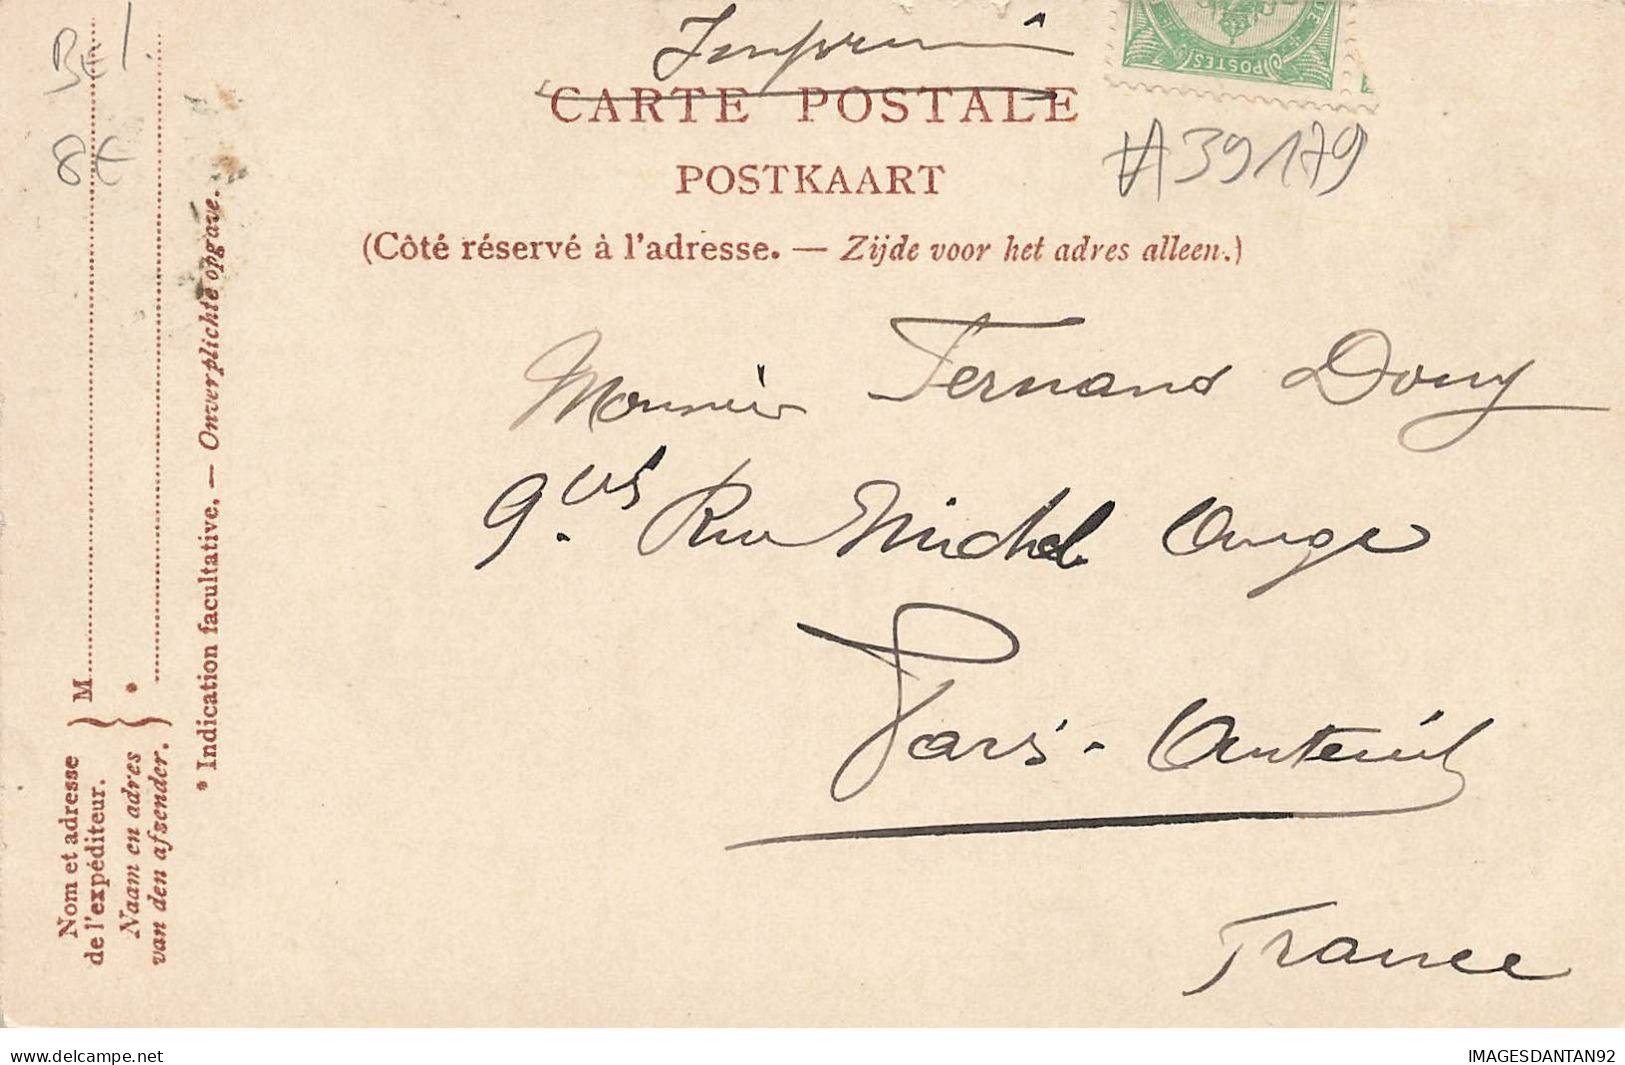 Imprimé
CARTE POSTALE
POSTES
#39179
POSTKAART
(Côté réservé à l'adresse. — Zijde voor het adres alleen.)
Monsieur Fernand Douy
9 bis. Rue Michel Ange
Paris - Auteuil
France
Bel.
8€
Nom et adresse
de l'expéditeur.
Naam en adres
van den afzender.
M
*
* Indication facultative. — Onverplichte opgave.
www.delcampe.net
IMAGESDANTAN92